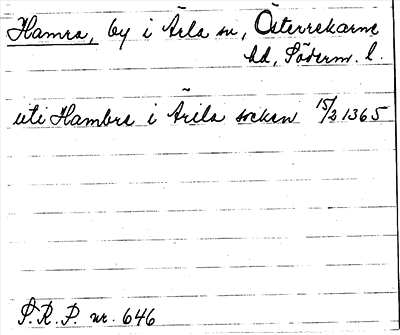 Hamra, by i Ärla sn, Österrekarne
hd, Söderm. l.
uti Hambre i Ãrila socken 15/2 1365
S.R.P. nr. 646